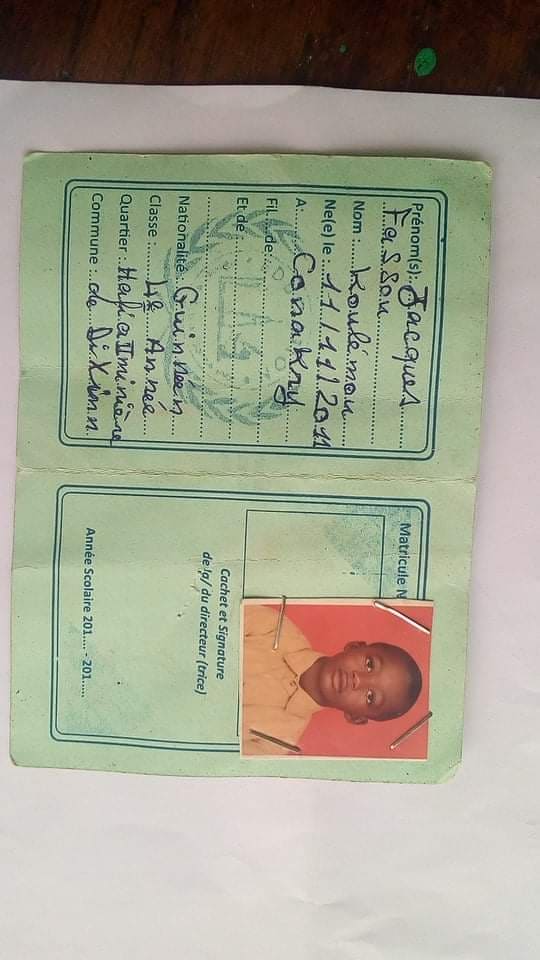 Prénom(s): Jacques
Fasson
Nom : Koulémou
Né(e) le : 11/11/2011
A: Conakry
Fil...de:
Et de :
Nationalité : Guinnéén
Classe : 4e Année
Quartier : Hafia II minière
Commune : de Dixinn
Matricule N
Cachet et Signature
de la/ du directeur (trice)
Année Scolaire 201..... - 201.....